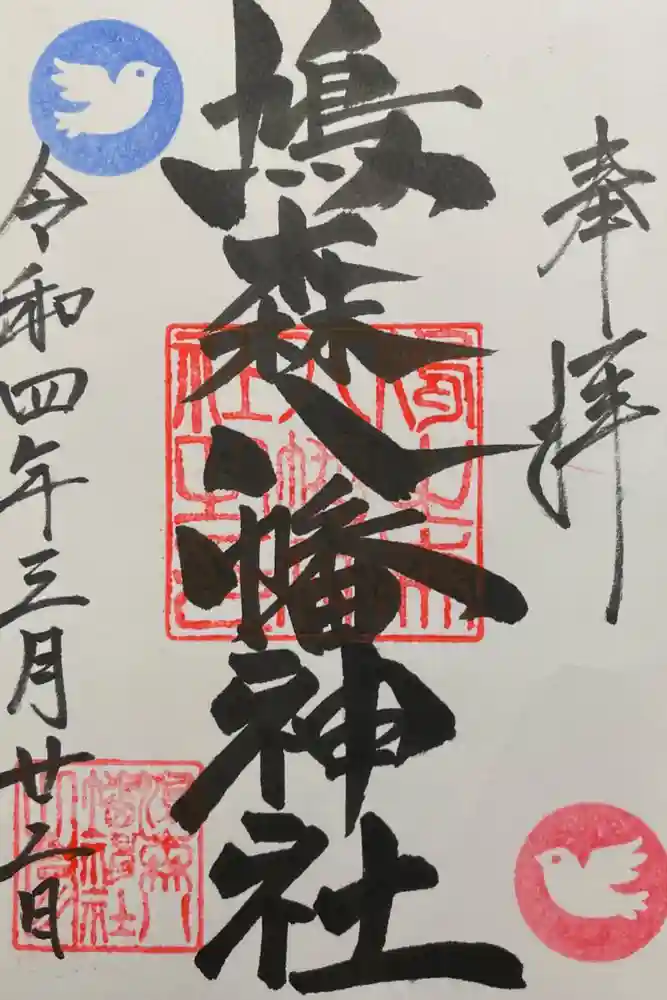 奉拝
鳩森八幡神社
令和四年三月廿二日